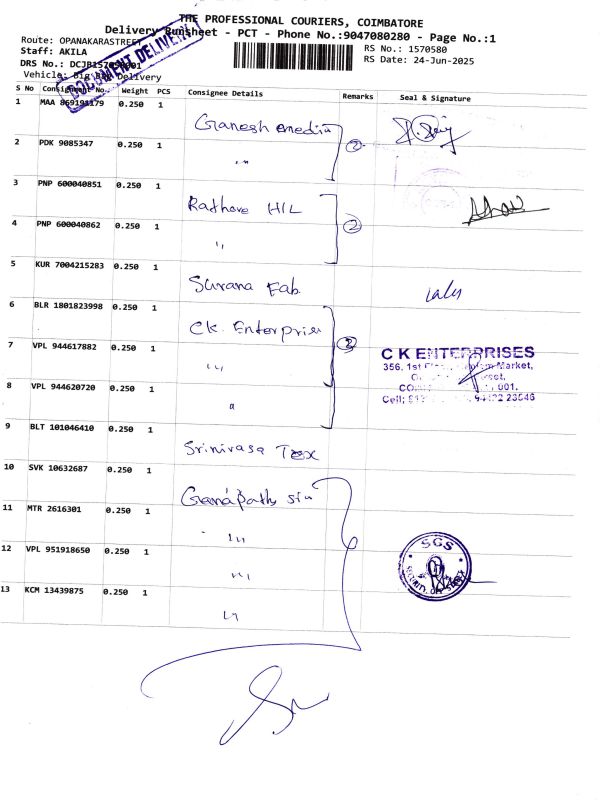 THE PROFESSIONAL COURIERS, COIMBATORE
Delivery Runsheet - PCT - Phone No.:9047080280 - Page No.:1
Route: OPANAKARASTREET
RS No.: 1570580
Staff: AKILA
RS Date: 24-Jun-2025
DRS No.:
Vehicle: Delivery
DOCUMENT DELIVERY
S No Consignment No. Weight PCS Consignee Details Remarks Seal & Signature
1 MAA 869191179 0.250 1 Ganesh media
2 PDK 9085347 0.250 1 〃 2
3 PNP 600040851 0.250 1 Rathore HIL
4 PNP 600040862 0.250 1 〃 2
5 KUR 7004215283 0.250 1 Surana Fab
6 BLR 1801823998 0.250 1 CK. Enterprise
7 VPL 944617882 0.250 1 〃
C K ENTERPRISES
356, 1st Market,
001.
Cell: 94422 23546
8 VPL 944620720 0.250 1 〃
9 BLT 101046410 0.250 1 Srinivasa Tex
10 SVK 10632687 0.250 1
11 MTR 2616301 0.250 1 〃
12 VPL 951918650 0.250 1 〃
SGS
13 KCM 13439875 0.250 1 〃